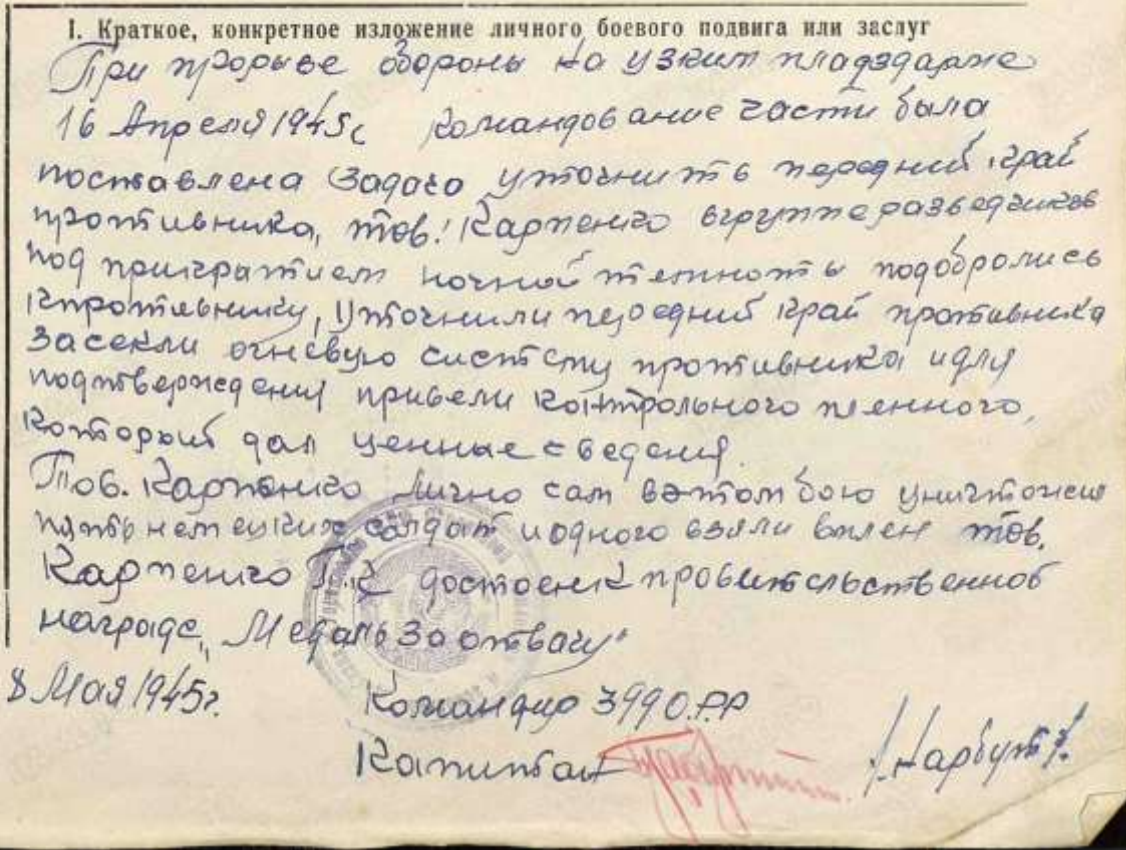 I. Краткое, конкретное изложение личного боевого подвига или заслуг
При прорыве обороны на узким пладздарме
16 Апреля 1945г командование части была
поставлена Задачо уточнить передний край
противника, тов. Карпенко вгруппе разведчиков
под прикратием ночной темноты подобролись
Кпротивнику, Уточнили передний край противника
Засекли огневую систему противника идля
подтверждения привели контрольного пленного,
Который дал ценные сведения.
Тов. Карпенко лично сам вэтом бою уничтожил
пять немецких солдат иодного взяли вплен тов.
Карпенко достоенк провительственноб
награде „Медаль За отвагу"
8 Мая 1945г. Командир 399 О.Р.Р
Капитан /Нарбут/.